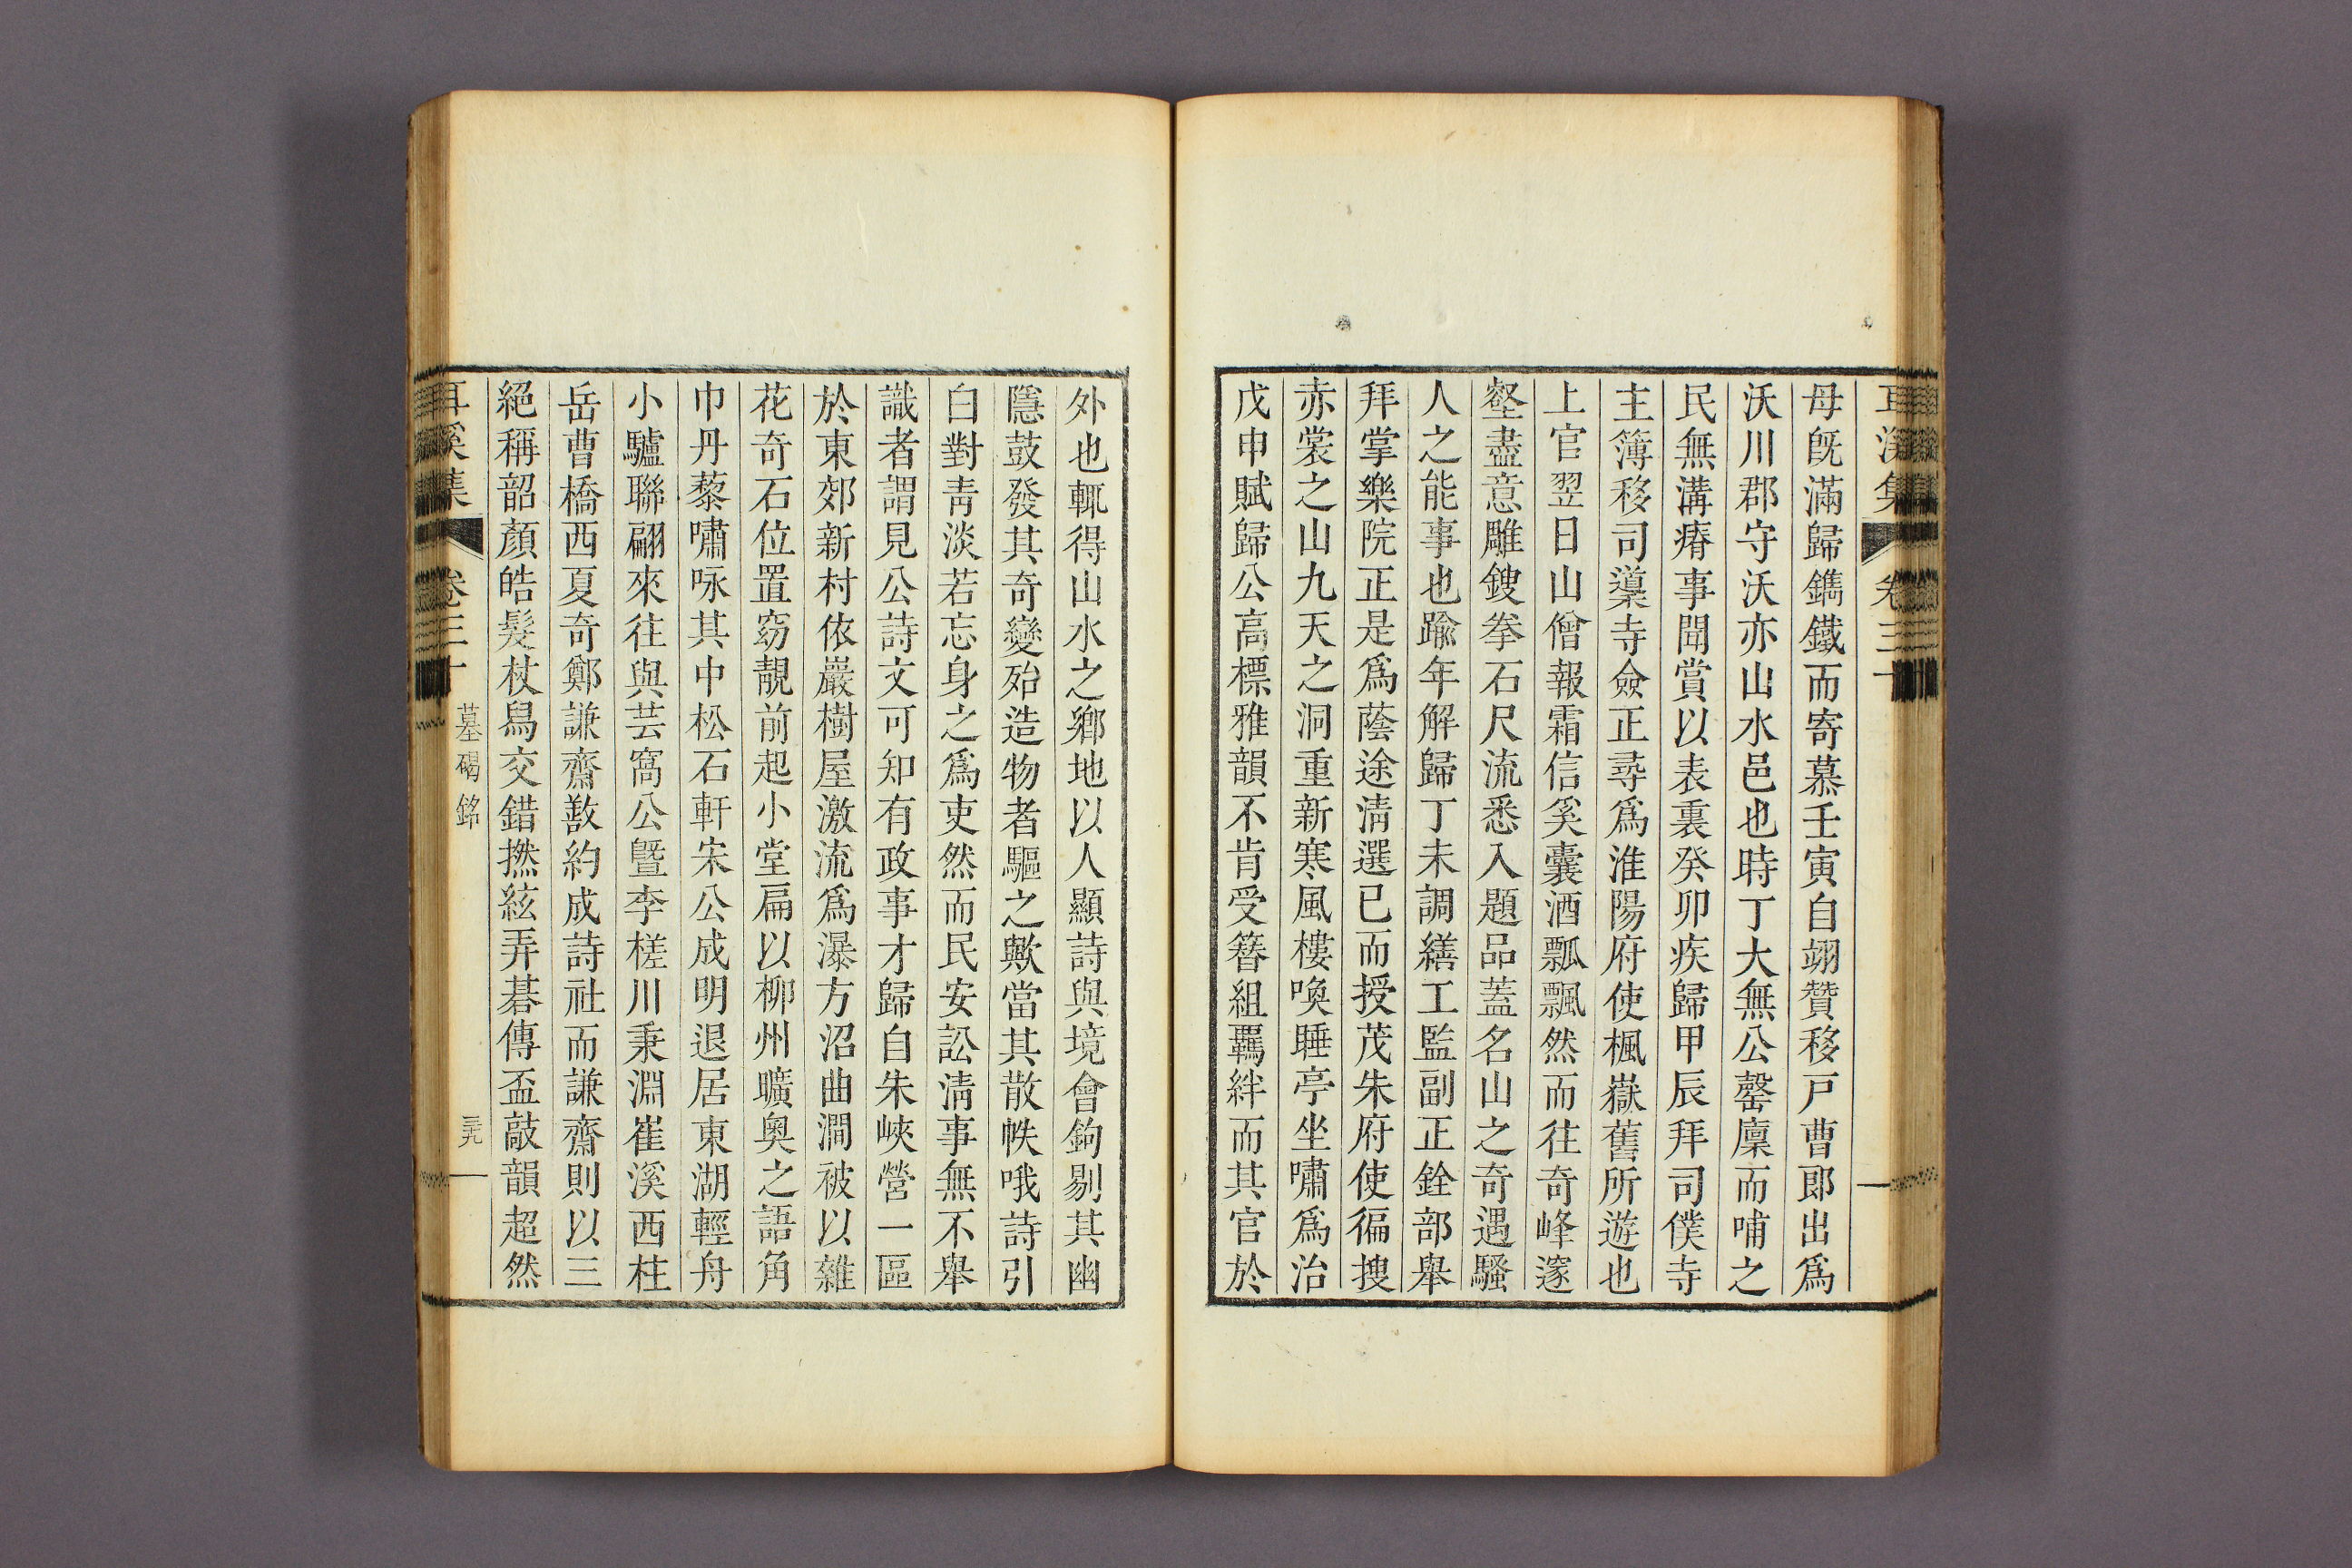 耳溪集 卷三十
母旣滿歸鐫鐵而寄慕壬寅自翊贊移戶曹郞出爲
沃川郡守沃亦山水邑也時丁大無公罄廩而哺之
民無溝瘠事聞賞以表裏癸卯疾歸甲辰拜司僕寺
主簿移司䆃寺僉正尋爲淮陽府使楓嶽舊所遊也
上官翌日山僧報霜信奚囊酒瓢飄然而往奇峰邃
壑盡意雕鎪拳石尺流悉入題品蓋名山之奇遇騷
人之能事也踰年解歸丁未調繕工監副正銓部擧
拜掌樂院正是爲蔭途淸選已而授茂朱府使徧搜
赤裳之山九天之洞重新寒風樓喚睡亭坐嘯爲治
戊申賦歸公高標雅韻不肯受簪組覊絆而其官於
外也輒得山水之鄕地以人顯詩與境會鉤剔其幽
隱鼓發其奇變殆造物者驅之歟當其散帙哦詩引
白對靑淡若忘身之爲吏然而民安訟淸事無不擧
識者謂見公詩文可知有政事才歸自朱峽營一區
於東郊新村依巖樹屋激流爲瀑方沼曲澗被以雜
花奇石位置窈靚前起小堂扁以柳州曠奧之語角
巾丹藜嘯咏其中松石軒宋公成明退居東湖輕舟
小驢聯翩來往與芸窩公曁李槎川秉淵崔溪西柱
岳曹橋西夏奇鄭謙齋敾約成詩社而謙齋則以三
絕稱韶顏皓髮杖舃交錯撚絃弄碁傳盃敲韻超然
耳溪集 卷三十 墓碣銘 三九